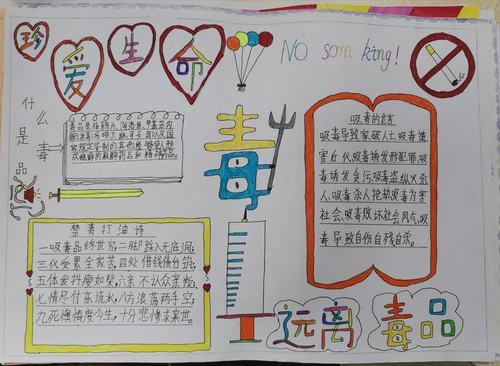 珍爱生命
NO som king!
什么是毒品
毒品是指鸦片、海洛因、甲基苯丙
胺(冰毒)、吗啡、大麻、可卡因以及国
家规定管制的其他能够使人形
成瘾癖的麻醉药品和精神药品。
毒
吸毒的危害
吸毒导致家破人亡,吸毒遗
害后代,吸毒诱发形犯罪,吸
毒诱发贪污,吸毒盗纵火杀
人、吸毒杀人抢劫,吸毒为害
社会、吸毒败坏社会风气,吸
毒导致自伤自残自杀。
禁毒打油诗
一吸毒品终世穷,二脚踩入无底洞;
三代受累全家苦,四处借钱债台筑;
五体发抖瘦如柴,六亲不认众亲叛;
七情尽付东流水,八方漂荡两手空;
九死懊悔度今生,十分悲惨来来世。
远离毒品